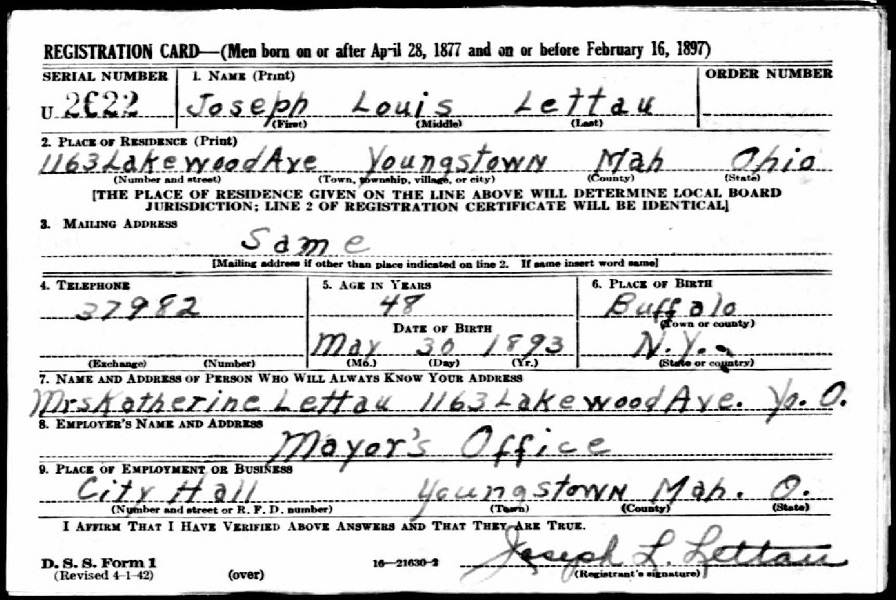 REGISTRATION CARD—(Men born on or after April 28, 1877 and on or before February 16, 1897)
SERIAL NUMBER 1. NAME (Print) ORDER NUMBER
U 2622 Joseph Louis Lettau
(First) (Middle) (Last)
2. PLACE OF RESIDENCE (Print)
1163 Lakewood Ave Youngstown Mah Ohio
(Number and street) (Town, township, village, or city) (County) (State)
[THE PLACE OF RESIDENCE GIVEN ON THE LINE ABOVE WILL DETERMINE LOCAL BOARD
JURISDICTION; LINE 2 OF REGISTRATION CERTIFICATE WILL BE IDENTICAL]
3. MAILING ADDRESS
Same
[Mailing address if other than place indicated on line 2. If same insert word same]
4. TELEPHONE 5. AGE IN YEARS 6. PLACE OF BIRTH
37982 48 Buffalo
DATE OF BIRTH (Town or county)
May 30 1893 N.Y.
(Exchange) (Number) (Mo.) (Day) (Yr.) (State or country)
7. NAME AND ADDRESS OF PERSON WHO WILL ALWAYS KNOW YOUR ADDRESS
Mrs Katherine Lettau 1163 Lakewood Ave. Yo. O.
8. EMPLOYER'S NAME AND ADDRESS
Mayor's Office
9. PLACE OF EMPLOYMENT OR BUSINESS
City Hall Youngstown Mah. O.
(Number and street or R. F. D. number) (Town) (County) (State)
I AFFIRM THAT I HAVE VERIFIED ABOVE ANSWERS AND THAT THEY ARE TRUE.
Joseph L. Lettau
D. S. S. Form 1 16—21630-2 (Registrant's signature)
(Revised 4-1-42) (over)